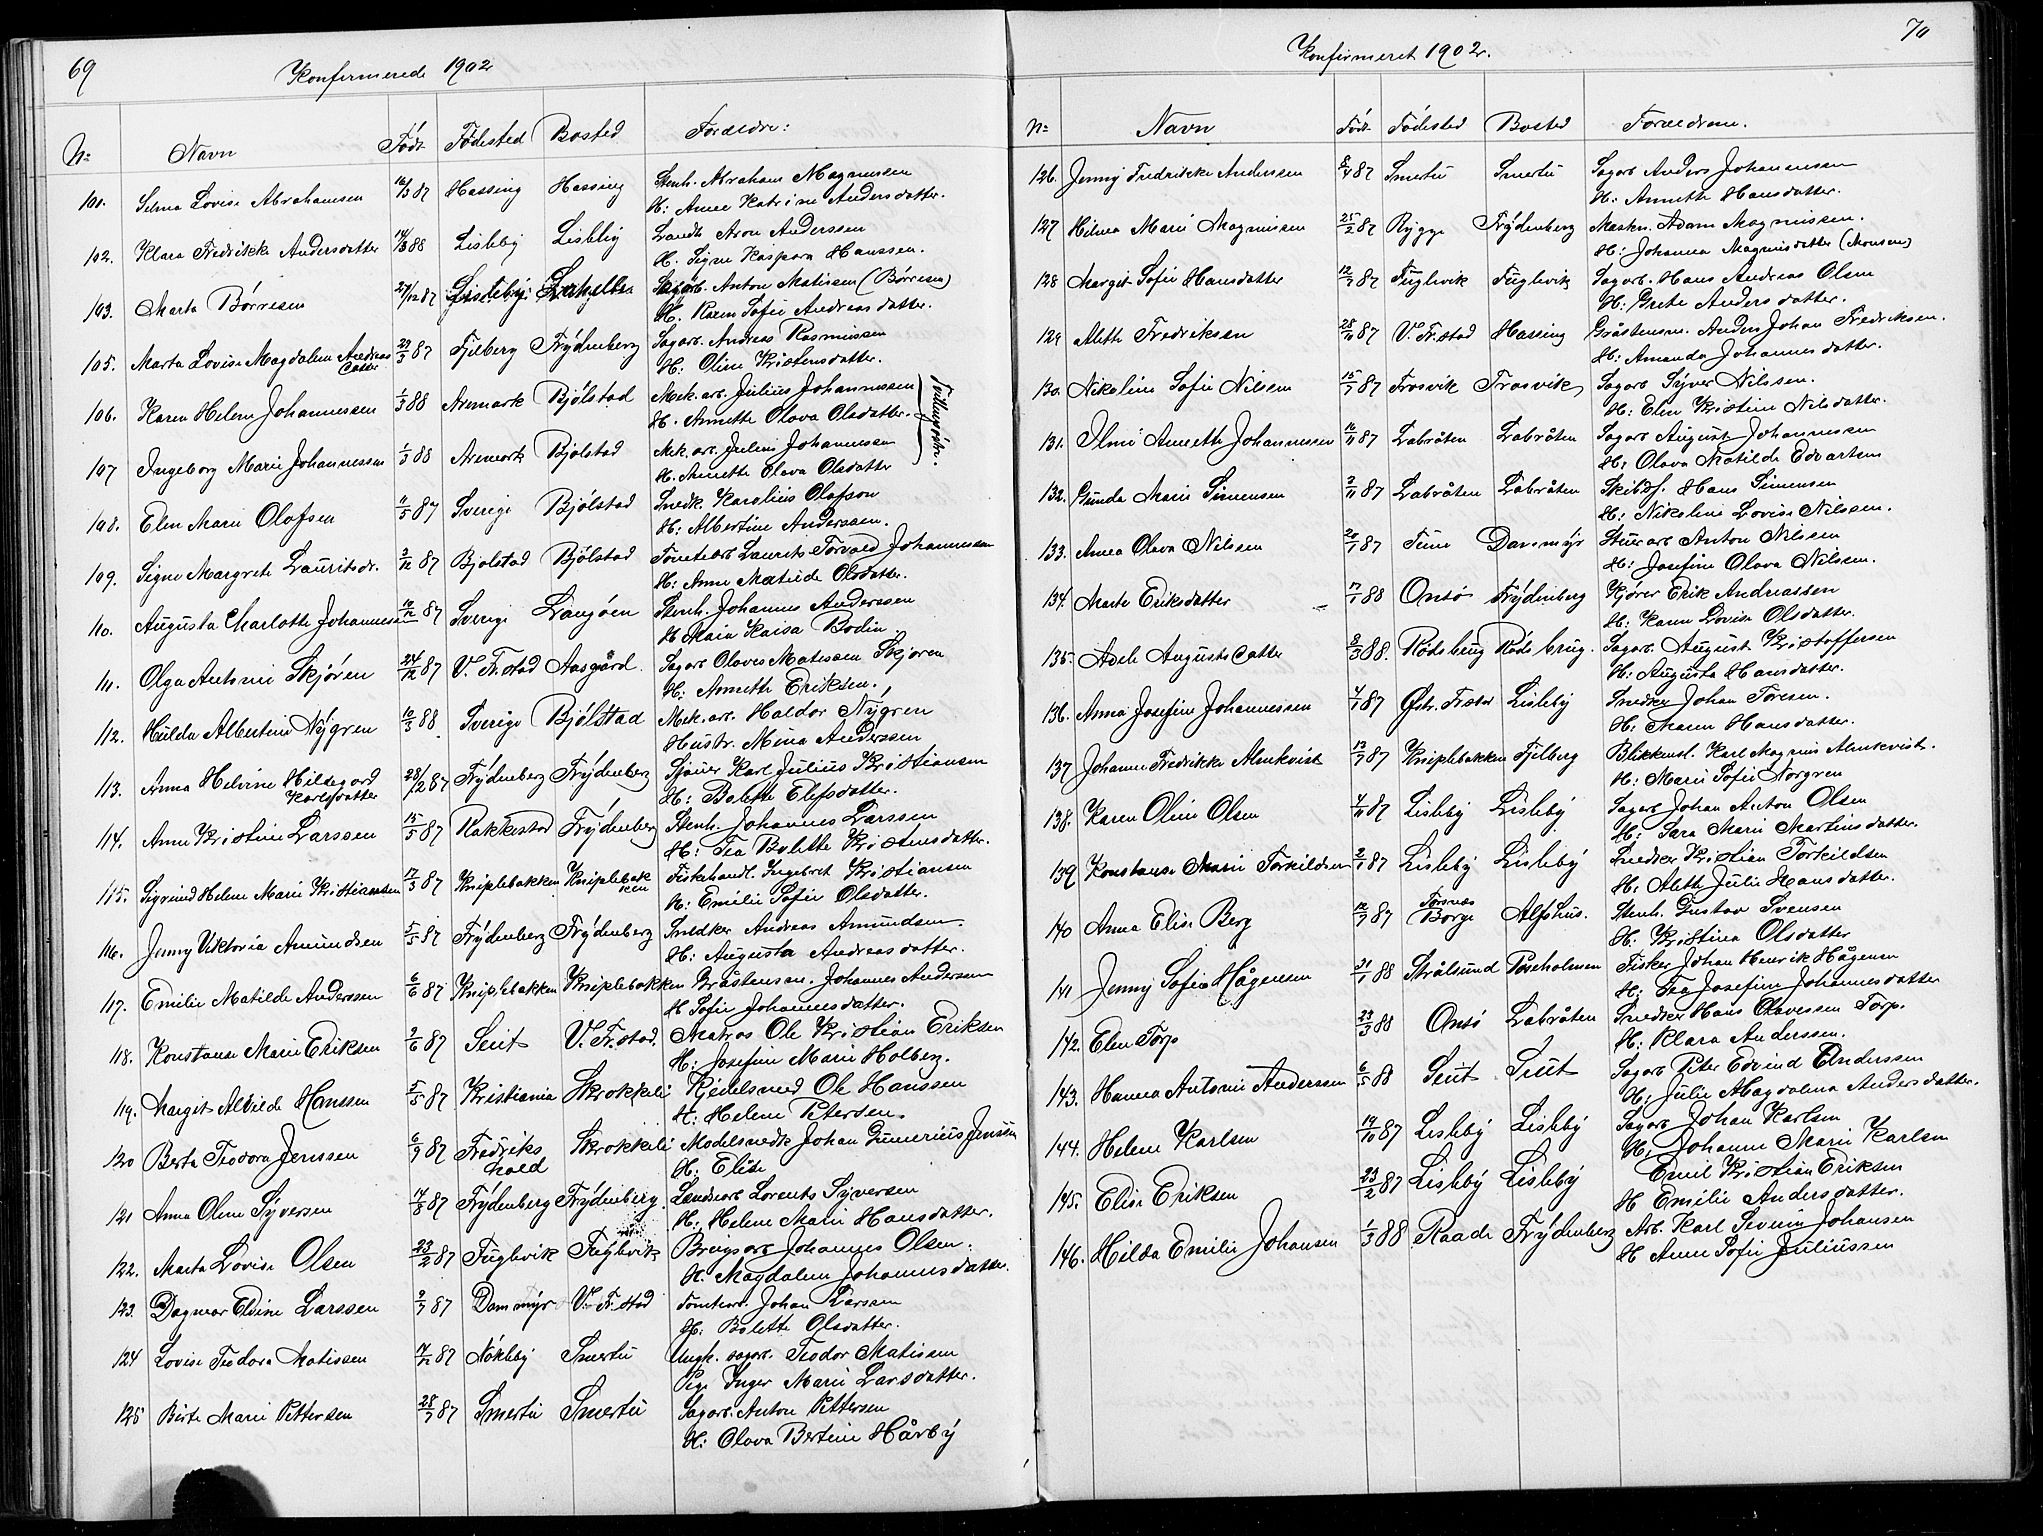 69
Konfirmerede 1902
No Navn Født Fødested Bosted Forældre:
101. Selma Lovise Abrahamsen 16/3 87 Hassing Hassing Stenh. Abraham Magnussen
H: Anne Katrine Andersdatter.
102. Klara Fredrikke Andersdatter 14/3 88 Lisleby Lisleby Landh Aron Anderssen
H. Signe Kaspara Hanssen.
103. Marta Börresen 27/12 87 Lisleby Sagarb. Anton Matissen (Börresen)
H. Karen Sofie Andreasdatter.
105. Marta Lovise Magdalene Andreas 23/3 87 Fjelberg Frydenberg Sagarb. Andreas Rasmussen
datter H: Oline Kristensdatter.
106. Karen Helene Johannessen 1/3 88 Aremark Bjölstad Mek. arb. Julius Johannessen
H. Annette Olava Olsdatter.
107 Ingeborg Marie Johannessen 1/3 88 Aremark Bjölstad Mek. arb. Julius Johannessen
H. Annette Olava Olsdatter
Tvillingsöstre.
108. Elen Marie Olofsen 11/5 87 Sverige Bjölstad Snedk. Karolius Olofson
H: Albertine Anderssen.
109. Signe Margrete Lauritsdr. 3/12 87 Bjolstad Bjölstad Tomtearb Laurits Torvald Johannessen
H: Anne Matilde Olsdatter.
110. Augusta Charlotte Johannesen 10/12 87 Sverige Langöen Stenh. Johannes Anderssen
H Maria Kaisa Bodin
111. Olga Antonie Skjören 24/12 87 V. Fr.stad Aasgård. Sagarb Olaves Matissen Skjören
H: Annette Eriksen.
112. Hulda Albertine Nygren 10/3 88 Sverige Bjölstad Mek. arb. Haldor Nygren
Hustr. Mina Anderssen
113. Anna Helvine Hildegard 28/12 87 Frydenberg Frydenberg Sjauer Karl Julius Kristiansen
Karlsdatter H: Bolette Elefsdatter.
114. Anne Kristine Larssen 15/5 87 Rakkestad Frydenberg Stenh. Johannes Larssen
H: Tea Bolette Kristensdatter.
115. Sigrund Helene Marie Kristianssen 17/3 87 Kniplebakken Kniplebak Fiskehandl. Ingebret Kristiansen
ken H: Emilie Sofie Olsdatter.
116. Jenny Viktoria Amundsen 5/5 87 Frydenberg Frydenberg Snedker Andreas Amundsen
H: Augusta Andreasdatter.
117. Emilie Matilde Anderssen 6/6 87 Kniplebakken Kniplebakken Gråstensm. Johannes Anderssen
H Sofie Johannesdatter.
118. Konstanse Marie Eriksen 2/6 87 Seut V. Fr.stad. Matros Ole Kristian Eriksen
H: Josefine Marie Holberg.
119. Margit Alvilde Hanssen 5/5 87 Kristiania Skrokkeli Kjedelsmed Ole Hanssen
H: Helene Petersen.
120 Berta Teodora Jenssen 6/9 87 Fredriks Skrokkeli Modelsnedk Johan Gunerius Jenssen
hald H: Elise
121 Anna Olene Syversen 14/8 87 Frydenberg Frydenberg. Landarb Lorents Syversen
H: Helene Marie Hansdatter.
122. Marta Lovise Olsen 23/2 87 Fuglevik Fuglevik Brugsarb Johannes Olsen.
H. Magdalene Johannesdatter.
123. Dagmar Elvine Larssen 9/7 87 Dammyr V. Fr.stad Tomtearb. Johan Larssen
H: Bolette Olsdatter.
124 Lovise Teodora Matissen 17/12 87 Nökleby Smertu Ungk. sagarb. Teodor Matissen
Pige Inger Marie Larsdatter.
125 Berte Marie Pettersen 28/7 87 Smertu Smertu Sagarb. Anton Pettersen
H: Olava Bertine Hårby
70
Konfirmeret 1902.
No Navn Födt Födested Bosted Forældrene.
126. Jenny Fredrikke Anderssen 8/4 87 Smertu Smertu Sagarb Anders Johannessen
H: Annette Hansdatter.
127 Hilma Marie Magnussen 25/2 87 Rygge Frydenberg Maskn. Adam Magnussen.
H: Johanna Magnusdatter (Monsen)
128 Margit Sofie Hansdatter 12/7 87 Fuglevik Fuglevik Sagarb. Hans Andreas Olsen
H: Grete Andersdatter.
129 Alette Fredriksen 28/11 87 V. Fr.stad Hassing Gråstensm. Anders Johan Fredriksen.
H: Amanda Johannesdatter.
130. Nikoline Sofie Nilsen 15/7 87 Trosvik Trosvik Sagarb Syver Nilssen.
H: Elen Kristine Nilsdatter.
131. Oline Annette Johannessen 16/11 87 Labråten Labråten Sagarb August Johannessen
H: Olava Matilde Edvartsen
132. Gunda Marie Simensen 2/11 87 Labråten Labråten Skibsf. Hans Simensen
H: Nikoline Lovise Nilssen.
133. Anna Olava Nilssen 20/1 87 Tune Dammyr Stuerarb Anton Nilssen
H: Josefine Olava Nilssen.
134. Marte Eriksdatter 17/1 88 Onsö Frydenberg Kjörer Erik Andreassen
H: Karen Lovise Olsdatter.
135. Adele Augustsdatter 8/3 88. Rödsbrug Röds brug. Sagarb August Kristoffersen
H: Augusta Hansdatter.
136. Anna Josefine Johannessen 4/1 87 Østr. Fr.stad Lisleby Snedker Johan Toresen.
H: Maren Hansdatter.
137 Johanne Fredrikke Almkvist 12/9 87 Kniplebakken Fjelberg Blikkensl. Karl Magnus Almkvist.
H: Marie Sofie Norgren
138. Karen Oline Olsen 4/11 87 Lisleby Lisleby Sagarb Johan Anton Olsen
H: Sara Marie Martinsdatter.
139 Konstanse Marie Torkildsen 2/1 87 Lisleby Lisleby Snedker Kristian Torkildsen
H: Alette Julie Hansdatter.
140 Anna Elise Berg 12/9 87 Torsnæs Borge Alfshus. Stenh. Gustav Svensen
H: Kristina Olsdatter
141 Jenny Sofie Hågensen 21/1 88 Strålsund Poseholmen Fisker Johan Henrik Hågensen
H: Tea Josefine Johannesdatter
142. Elen Torp 23/3 88 Onsö Labråten Snedker Hans Olavessen Torp.
H: Klara Anderssen.
143. Hanna Antonie Anderssen 6/5 88 Seut Seut Sagarb Peter Edvind Anderssen
H: Julie Magdalena Andersdatter.
144. Helene Karlsen 14/10 87 Lisleby Lisleby Sagarb Johan Karlsen
H: Johanne Marie Karlsen
145. Elise Eriksen 23/2 87 Lisleby Lisleby Emil Kristian Eriksen
H Emilie Andersdatter.
146. Hilda Emilie Johansen 1/3 88 Raade Frydenberg Arb. Karl Severin Johansen
H Anne Sofie Juliussen